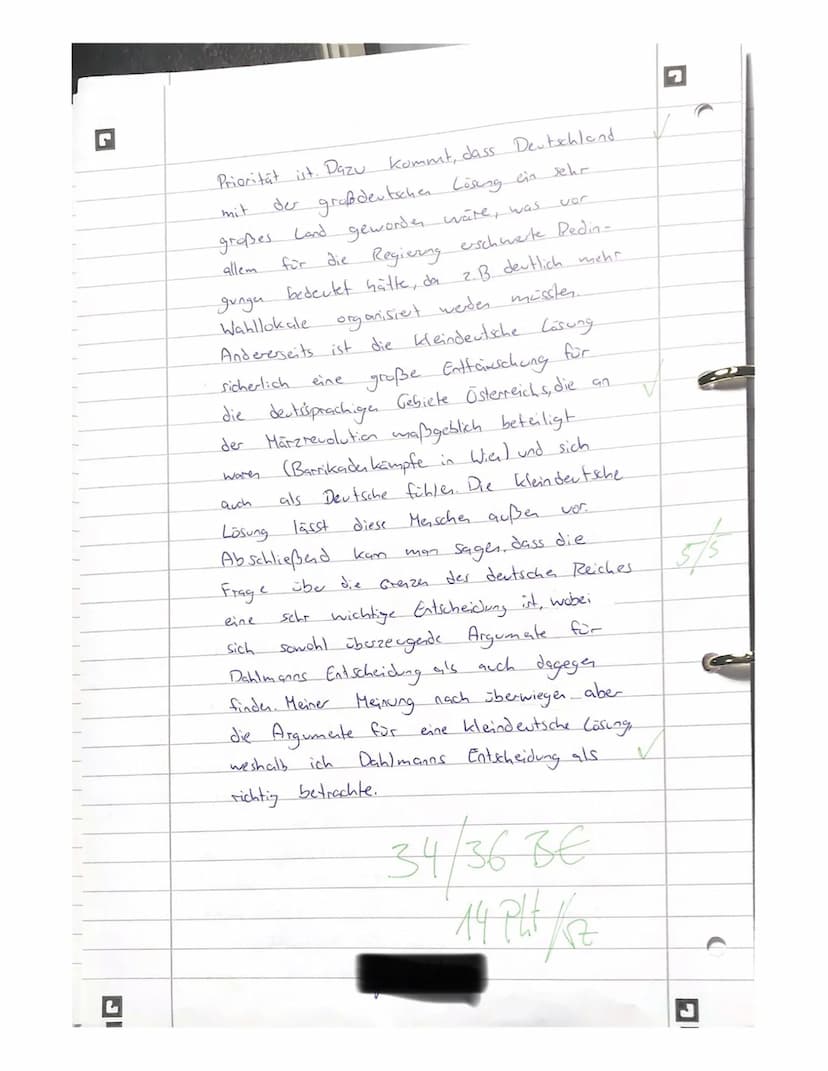 Priorität ist. Dazu kommt, dass Deutschland
mit der großdeutschen Lösung ein sehr
großes Land geworden wäre, was vor
allem für die Regierung erschwerte Bedin-
gungen bedeutet hätte, da z.B. deutlich mehr
Wahllokale organisiert werden müssten.
Andererseits ist die kleindeutsche Lösung
sicherlich eine große Enttäuschung für
die deutschsprachigen Gebiete Österreichs, die an
der Märzrevolution maßgeblich beteiligt
waren (Barrikadenkämpfe in Wien) und sich
auch als Deutsche fühlen. Die kleindeutsche
Lösung lässt diese Menschen außen vor.
Abschließend kann man sagen, dass die
Frage über die Grenzen des deutschen Reiches
5/5
eine sehr wichtige Entscheidung ist, wobei
sich sowohl überzeugende Argumente für
Dahlmanns Entscheidung als auch dagegen
finden. Meiner Meinung nach überwiegen aber
die Argumente für eine kleindeutsche Lösung,
weshalb ich Dahlmanns Entscheidung als
richtig betrachte.
34/36 BE
14 Pkt